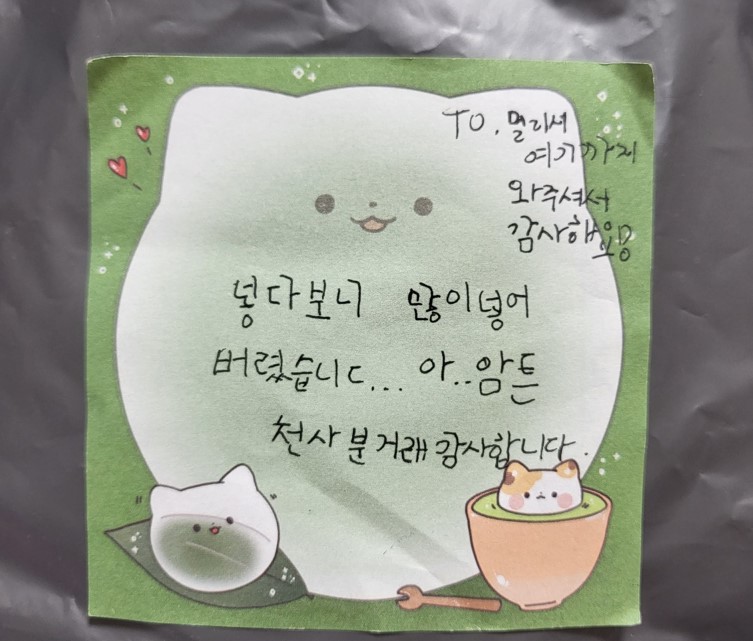 TO. 멀리서
여기까지
와주셔서
감사해용
넣다보니 많이넣어
버렸습니다... 아..암튼
천사분 거래 감사합니다.